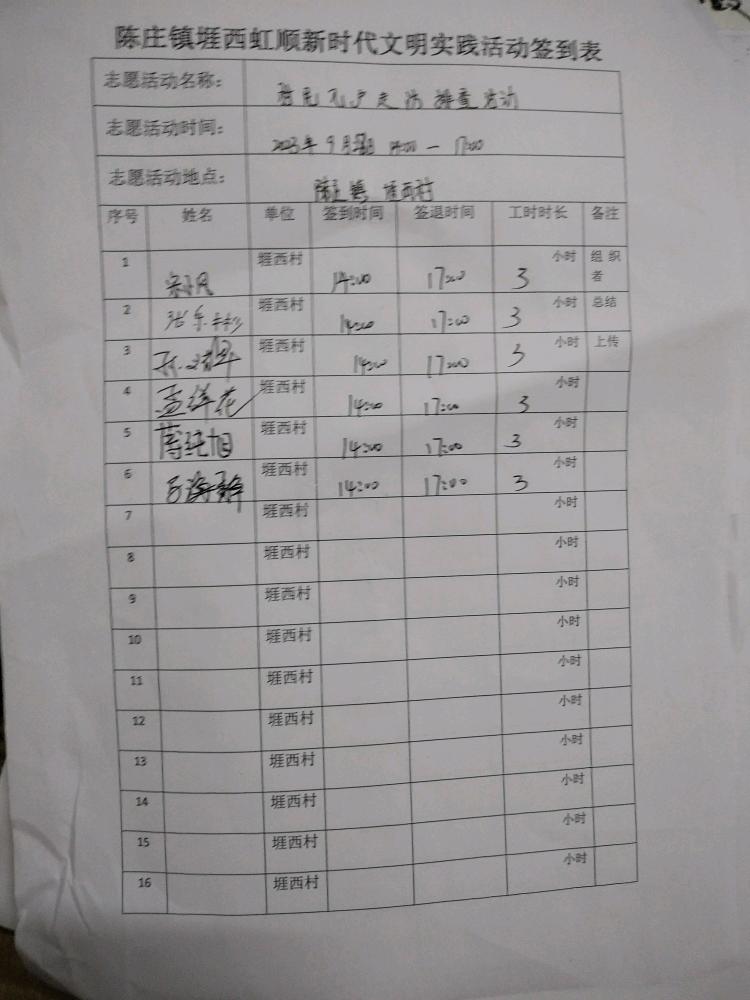 陈庄镇堐西虹顺新时代文明实践活动签到表
志愿活动名称： 走访排查活动
志愿活动时间： 2023年9月 14:00 — 17:00
志愿活动地点： 陈庄镇 堐西村
序号 姓名 单位 签到时间 签退时间 工时时长 备注
1 堐西村 14:00 17:00 3 小时 组织者
2 堐西村 14:00 17:00 3 小时 总结
3 堐西村 14:00 17:00 3 小时 上传
4 孟洋花 堐西村 14:00 17:00 3 小时
5 堐西村 14:00 17:00 3 小时
6 堐西村 14:00 17:00 3 小时
7 堐西村 小时
8 堐西村 小时
9 堐西村 小时
10 堐西村 小时
11 堐西村 小时
12 堐西村 小时
13 堐西村 小时
14 堐西村 小时
15 堐西村 小时
16 堐西村 小时